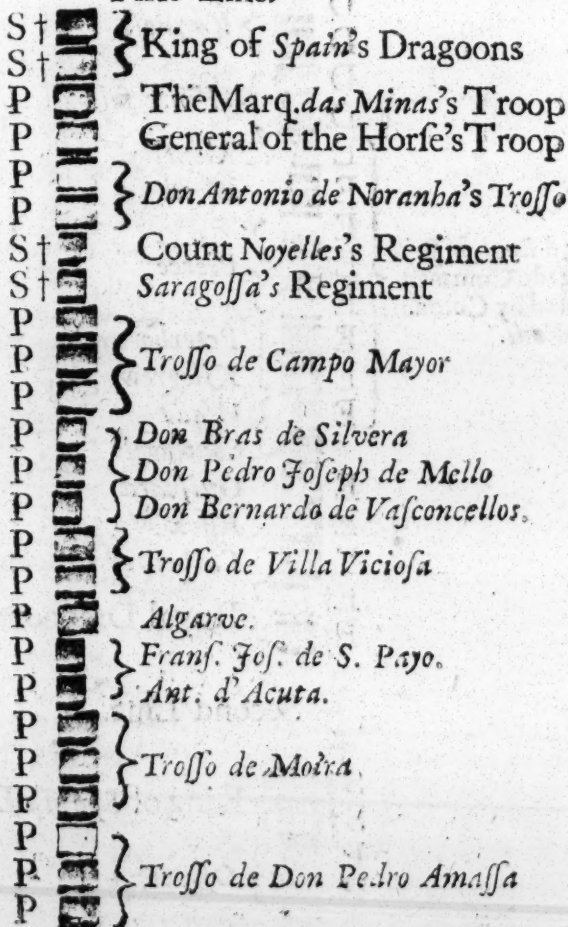 S†
S† King of Spain's Dragoons
P The Marq. das Minas's Troop
P General of the Horſe's Troop
P
P Don Antonio de Noranha's Troſſo
S† Count Noyelles's Regiment
S† Saragoſſa's Regiment
P
P Troſſo de Campo Mayor
P
P Don Bras de Silvera
P Don Pedro Joſeph de Mello
P Don Bernardo de Vaſconcellos.
P
P Troſſo de Villa Vicioſa
P Algarve.
P Franſ. Joſ. de S. Payo.
P Ant. d'Acuta.
P
P Troſſo de Moira
P
P
P. Troſſo de Don Pedro Amaſſa
P